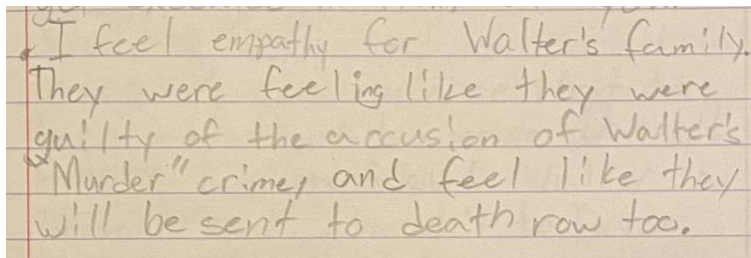 • I feel empathy for Walter's family.
They were feeling like they were
guilty of the accusion of Walter's
"Murder" crime, and feel like they
will be sent to death row too.